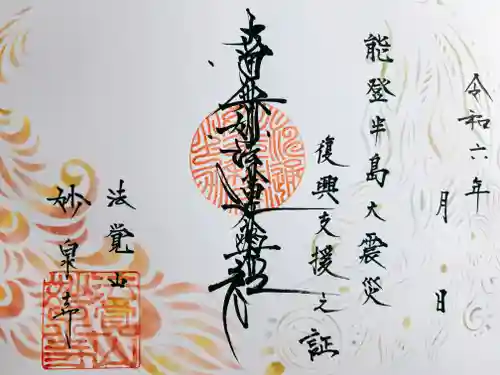 令和六年　月　日
能登半島大震災
復興支援之証
南無妙法蓮華経
法覚山
妙泉寺